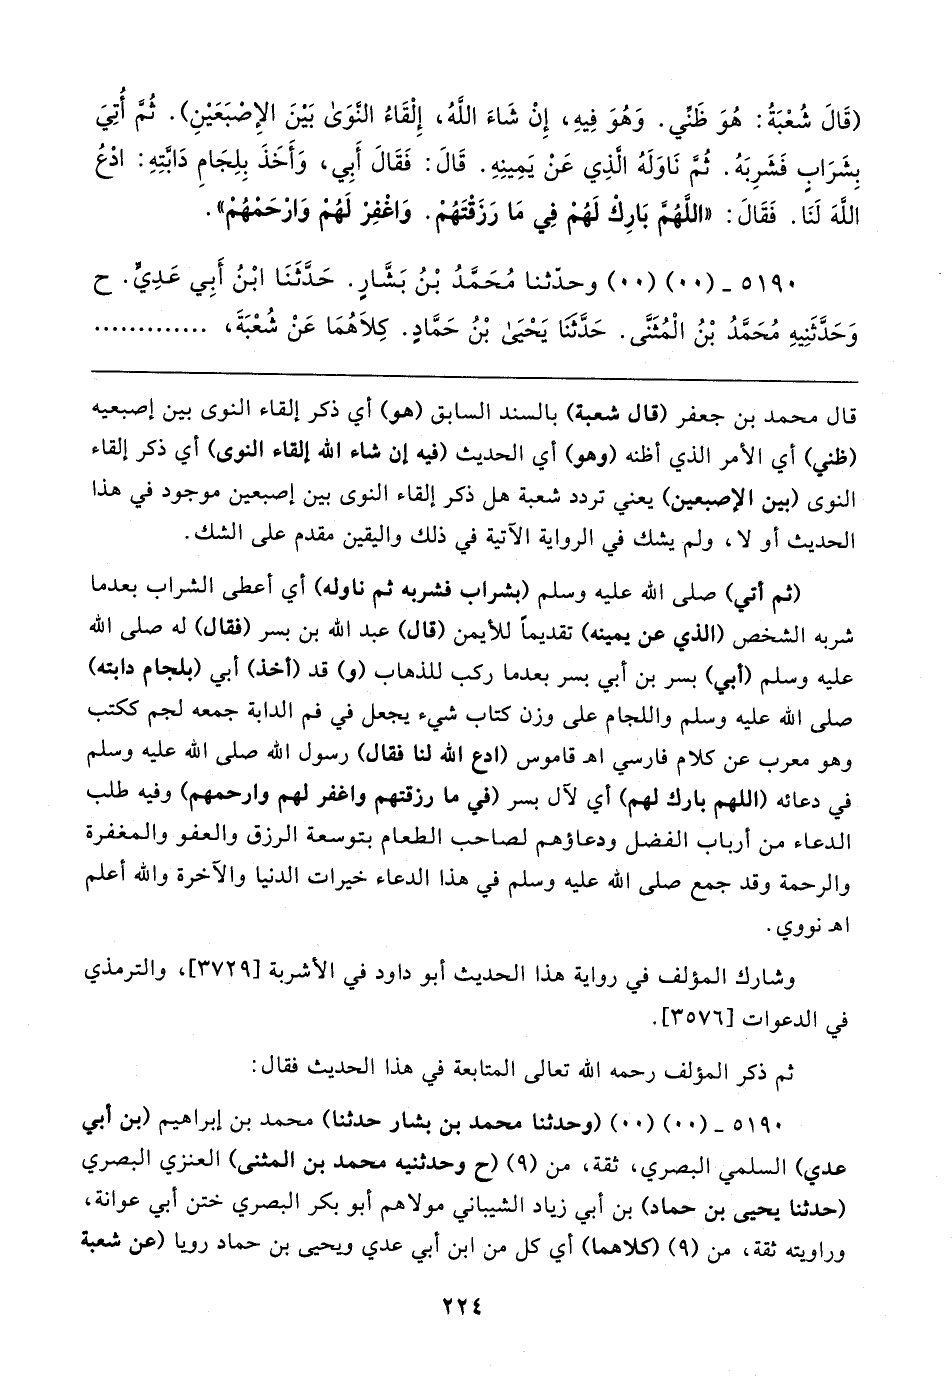 (قَالَ شُعْبَةُ: هُوَ ظَنِّي. وَهُوَ فِيهِ، إِنْ شَاءَ اللَّهُ، إِلْقَاءُ النَّوَىٰ بَيْنَ الإِصْبَعَيْنِ). ثُمَّ أُتِيَ
بِشَرَابٍ فَشَرِبَهُ. ثُمَّ نَاوَلَهُ الَّذِي عَنْ يَمِينِهِ. قَالَ: فَقَالَ أَبِي، وَأَخَذَ بِلِجَامِ دَابَّتِهِ: ادْعُ
اللَّهَ لَنَا. فَقَالَ: «اللَّهُمَّ بَارِكْ لَهُمْ فِي مَا رَزَقْتَهُمْ. وَاغْفِرْ لَهُمْ وَارْحَمْهُمْ».
٥١٩٠ ـ (٠٠) (٠٠) وحدّثنا مُحَمَّدُ بْنُ بَشَّارٍ. حَدَّثَنَا ابْنُ أَبِي عَدِيٍّ. ح
وَحَدَّثَنِيهِ مُحَمَّدُ بْنُ الْمُثَنَّى. حَدَّثَنَا يَحْيَىٰ بْنُ حَمَّادٍ. كِلاَهُمَا عَنْ شُعْبَةَ، .............
قال محمد بن جعفر (قال شعبة) بالسند السابق (هو) أي ذكر إلقاء النوى بين إصبعيه
(ظني) أي الأمر الذي أظنه (وهو) أي الحديث (فيه إن شاء الله إلقاء النوى) أي ذكر إلقاء
النوى (بين الإصبعين) يعني تردد شعبة هل ذكر إلقاء النوى بين إصبعين موجود في هذا
الحديث أو لا، ولم يشك في الرواية الآتية في ذلك واليقين مقدم على الشك.
(ثم أتي) صلى الله عليه وسلم (بشراب فشربه ثم ناوله) أي أعطى الشراب بعدما
شربه الشخص (الذي عن يمينه) تقديماً للأيمن (قال) عبد الله بن بسر (فقال) له صلى الله
عليه وسلم (أبي) بسر بن أبي بسر بعدما ركب للذهاب (و) قد (أخذ) أبي (بلجام دابته)
صلى الله عليه وسلم واللجام على وزن كتاب شيء يجعل في فم الدابة جمعه لجم ككتب
وهو معرب عن كلام فارسي اهـ قاموس (ادع الله لنا فقال) رسول الله صلى الله عليه وسلم
في دعائه (اللهم بارك لهم) أي لآل بسر (في ما رزقتهم واغفر لهم وارحمهم) وفيه طلب
الدعاء من أرباب الفضل ودعاؤهم لصاحب الطعام بتوسعة الرزق والعفو والمغفرة
والرحمة وقد جمع صلى الله عليه وسلم في هذا الدعاء خيرات الدنيا والآخرة والله أعلم
اهـ نووي.
وشارك المؤلف في رواية هذا الحديث أبو داود في الأشربة [٣٧٢٩]، والترمذي
في الدعوات [٣٥٧٦].
ثم ذكر المؤلف رحمه الله تعالى المتابعة في هذا الحديث فقال:
٥١٩٠ ـ (٠٠) (٠٠) (وحدثنا محمد بن بشار حدثنا) محمد بن إبراهيم (بن أبي
عدي) السلمي البصري، ثقة، من (٩) (ح وحدثنيه محمد بن المثنى) العنزي البصري
(حدثنا يحيى بن حماد) بن أبي زياد الشيباني مولاهم أبو بكر البصري ختن أبي عوانة،
وراويته ثقة، من (٩) (كلاهما) أي كل من ابن أبي عدي ويحيى بن حماد رويا (عن شعبة
٢٢٤